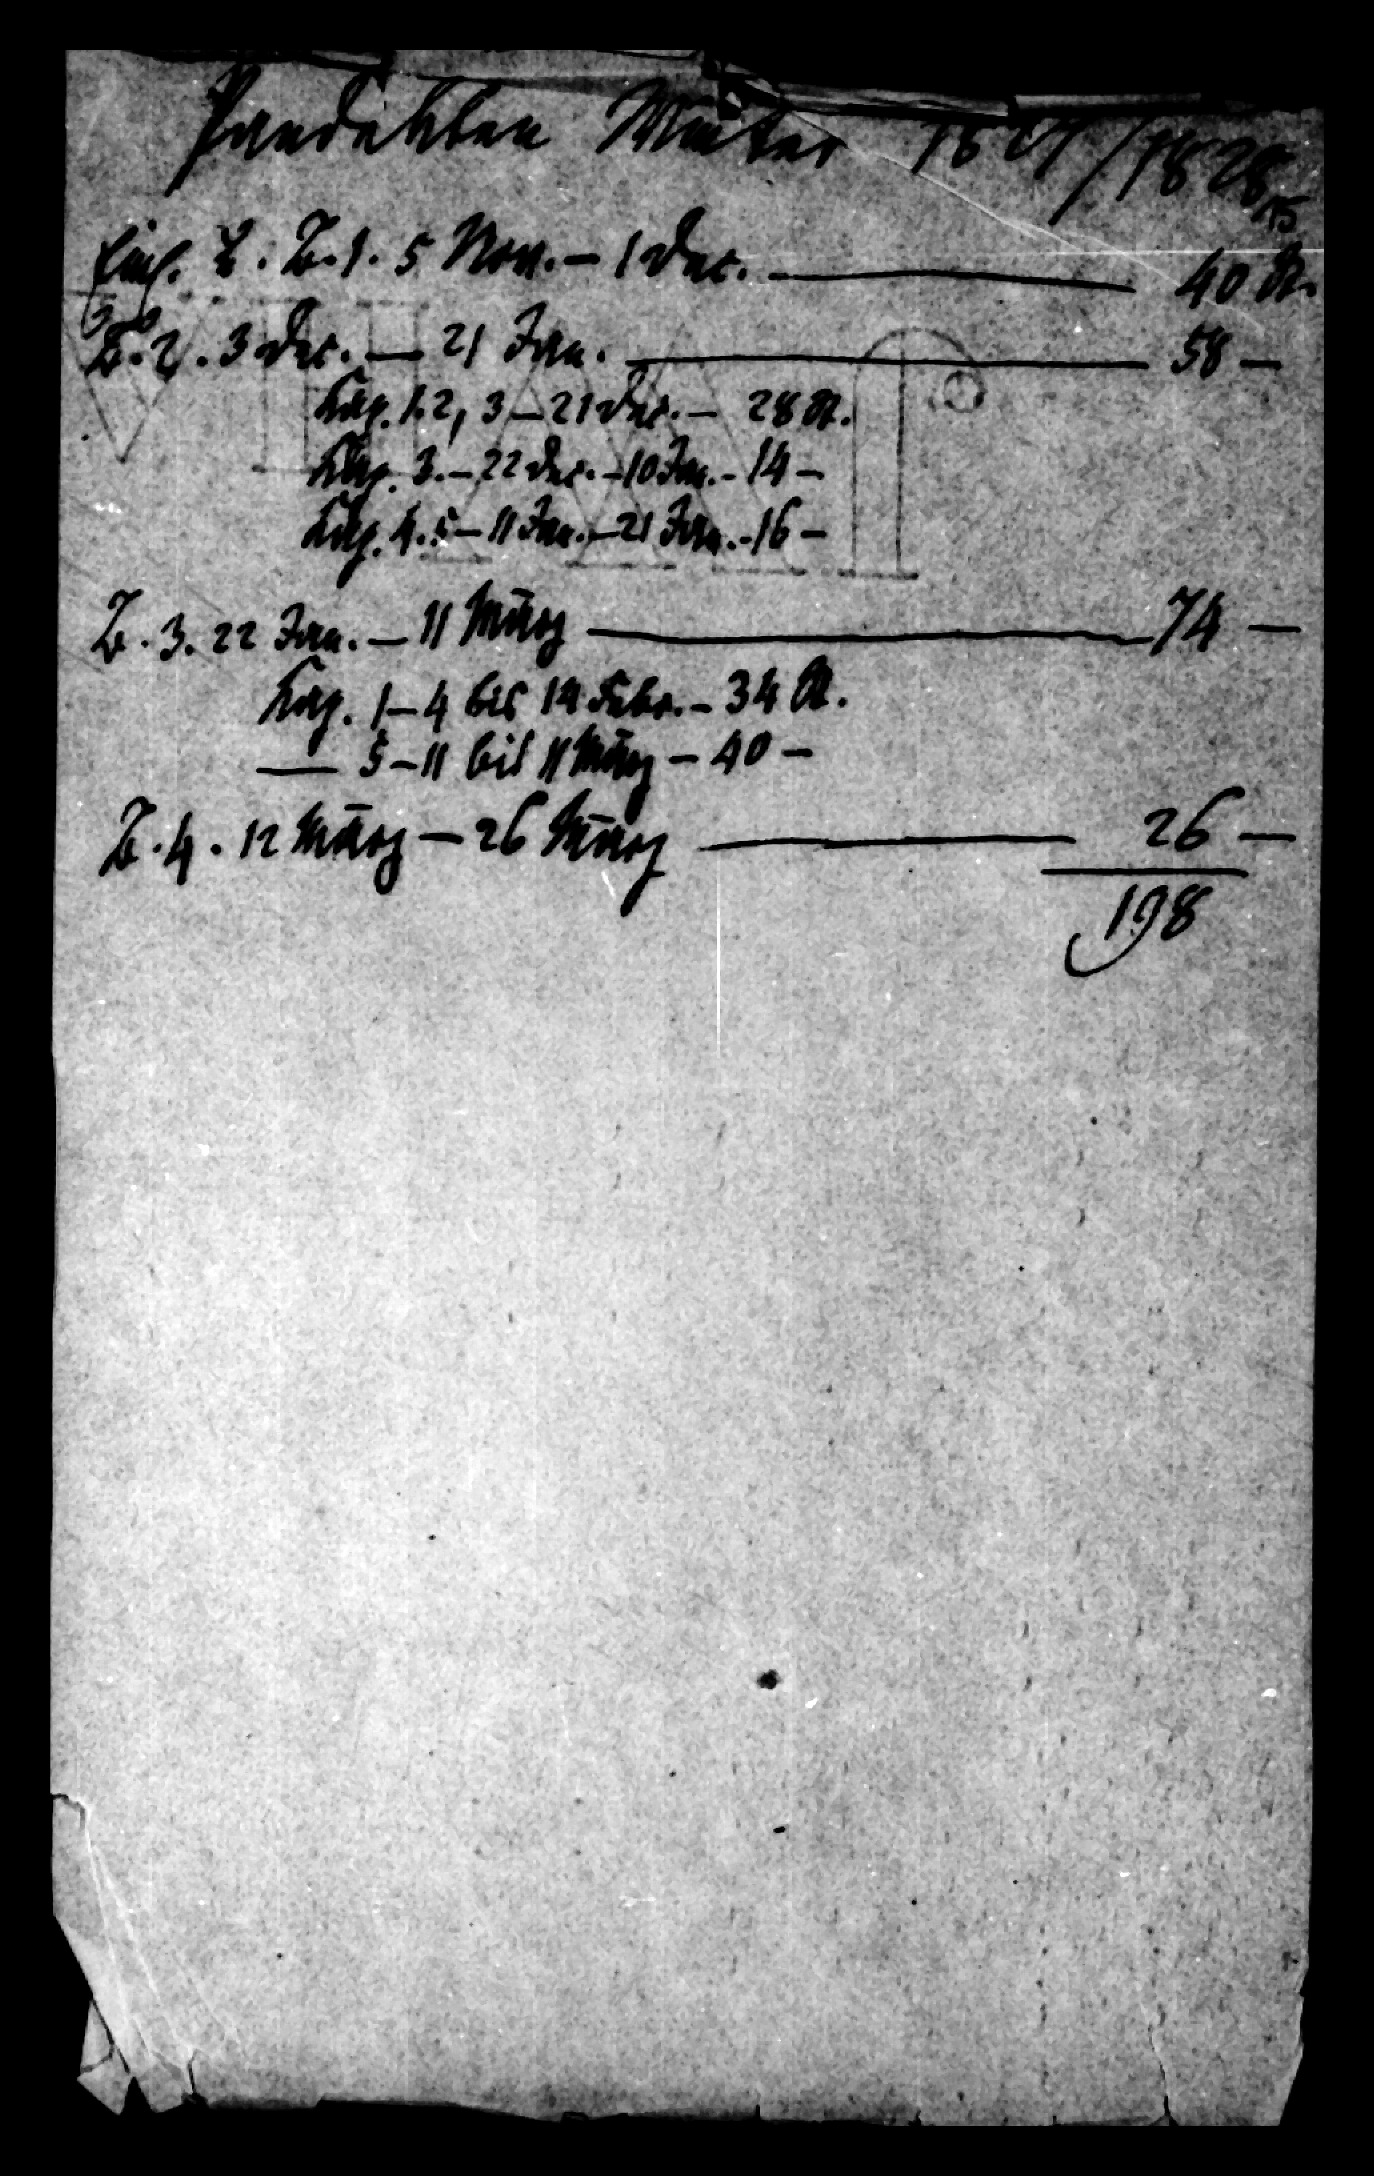 Pandekten Winter 1827/1828
Einl. u. B. 1. 5 Nov. – 1 Dec. — 40 St.
B. 2. 3 Dec. — 21 Jan. — 58 —
Kap. 1. 2, 3 – 21 Dec. – 28 St.
Kap. 3. – 22 Dec. – 10 Jan. – 14 –
Kap. 4. 5 – 11 Jan. – 21 Jan. – 16 –
B. 3. 22 Jan. – 11 März — 74 —
Kap. 1–4 bis 14 Febr. – 34 St.
— 5–11 bis 11 März – 40 –
B. 4. 12 März – 26 März — 26 —
198